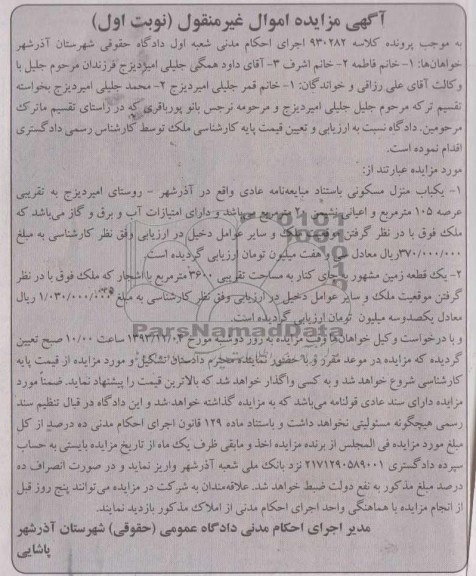 آگهی مزایده اموال غیرمنقول (نوبت اول)
به موجب پرونده کلاسه ۹۳۰۲۸۲ اجرای احکام مدنی شعبه اول دادگاه حقوقی شهرستان آذرشهر
خواهان‌ها: ۱- خانم فاطمه ۲- خانم اشرف ۳- آقای داود همگی جلیلی امیردیزج فرزندان مرحوم جلیل با
وکالت آقای علی رزاقی و خواندگان: ۱- خانم قمر جلیلی امیردیزج ۲- محمد جلیلی امیردیزج بخواسته
تقسیم ترکه مرحوم جلیل جلیلی امیردیزج و مرحومه نرجس بانو پورباقری که در راستای تقسیم ماترک
مرحومین. دادگاه نسبت به ارزیابی و تعیین قیمت پایه کارشناسی ملک توسط کارشناس رسمی دادگستری
اقدام نموده است.
مورد مزایده عبارتند از:
۱- یکباب منزل مسکونی باستناد مبایعه‌نامه عادی واقع در آذرشهر - روستای امیردیزج به تقریبی
عرصه ۱۰۵ مترمربع و اعیانی نشیمن مترمربع می‌باشد و دارای امتیازات آب و برق و گاز می‌باشد که
ملک فوق با در نظر گرفتن موقعیت ملک و سایر عوامل دخیل در ارزیابی وفق نظر کارشناسی به مبلغ
۳۷۰/۰۰۰/۰۰۰ریال معادل سی و هفت میلیون تومان ارزیابی گردیده است.
۲- یک قطعه زمین مشهور به جای کنار به مساحت تقریبی ۳۶۰۰مترمربع با اشجار که ملک فوق با در نظر
گرفتن موقعیت ملک و سایر عوامل دخیل در ارزیابی وفق نظر کارشناسی به مبلغ ۱/۰۳۰/۰۰۰/۰۰۰ ریال
معادل یکصدوسه میلیون تومان ارزیابی گردیده است.
و با درخواست وکیل خواهان‌ها وقت مزایده به روز دوشنبه مورخ ساعت ۱۰/۰۰ صبح تعیین
گردیده که مزایده در موعد مقرر و با حضور نماینده محترم دادستان تشکیل و مورد مزایده از قیمت پایه
کارشناسی شروع خواهد شد و به کسی واگذار خواهد شد که بالاترین قیمت را پیشنهاد نماید. ضمناً مورد
مزایده دارای سند عادی قولنامه می‌باشد که به مزایده گذاشته خواهد شد و این دادگاه در قبال تنظیم سند
رسمی هیچگونه مسئولیتی نخواهد داشت و باستناد ماده ۱۲۹ قانون اجرای احکام مدنی ده درصد از کل
مبلغ مورد مزایده فی المجلس از برنده مزایده اخذ و مابقی ظرف یک ماه از تاریخ مزایده بایستی به حساب
سپرده دادگستری ۲۱۷۱۲۹۰۵۸۹۰۰۱ نزد بانک ملی شعبه آذرشهر واریز نماید و در صورت انصراف ده
درصد مبلغ مذکور به نفع دولت ضبط خواهد شد. علاقه‌مندان به شرکت در مزایده می‌توانند پنج روز قبل
از انجام مزایده با هماهنگی واحد اجرای احکام مدنی از املاک مذکور بازدید نمایند.
مدیر اجرای احکام مدنی دادگاه عمومی (حقوقی) شهرستان آذرشهر
پاشایی
ParsNamadData